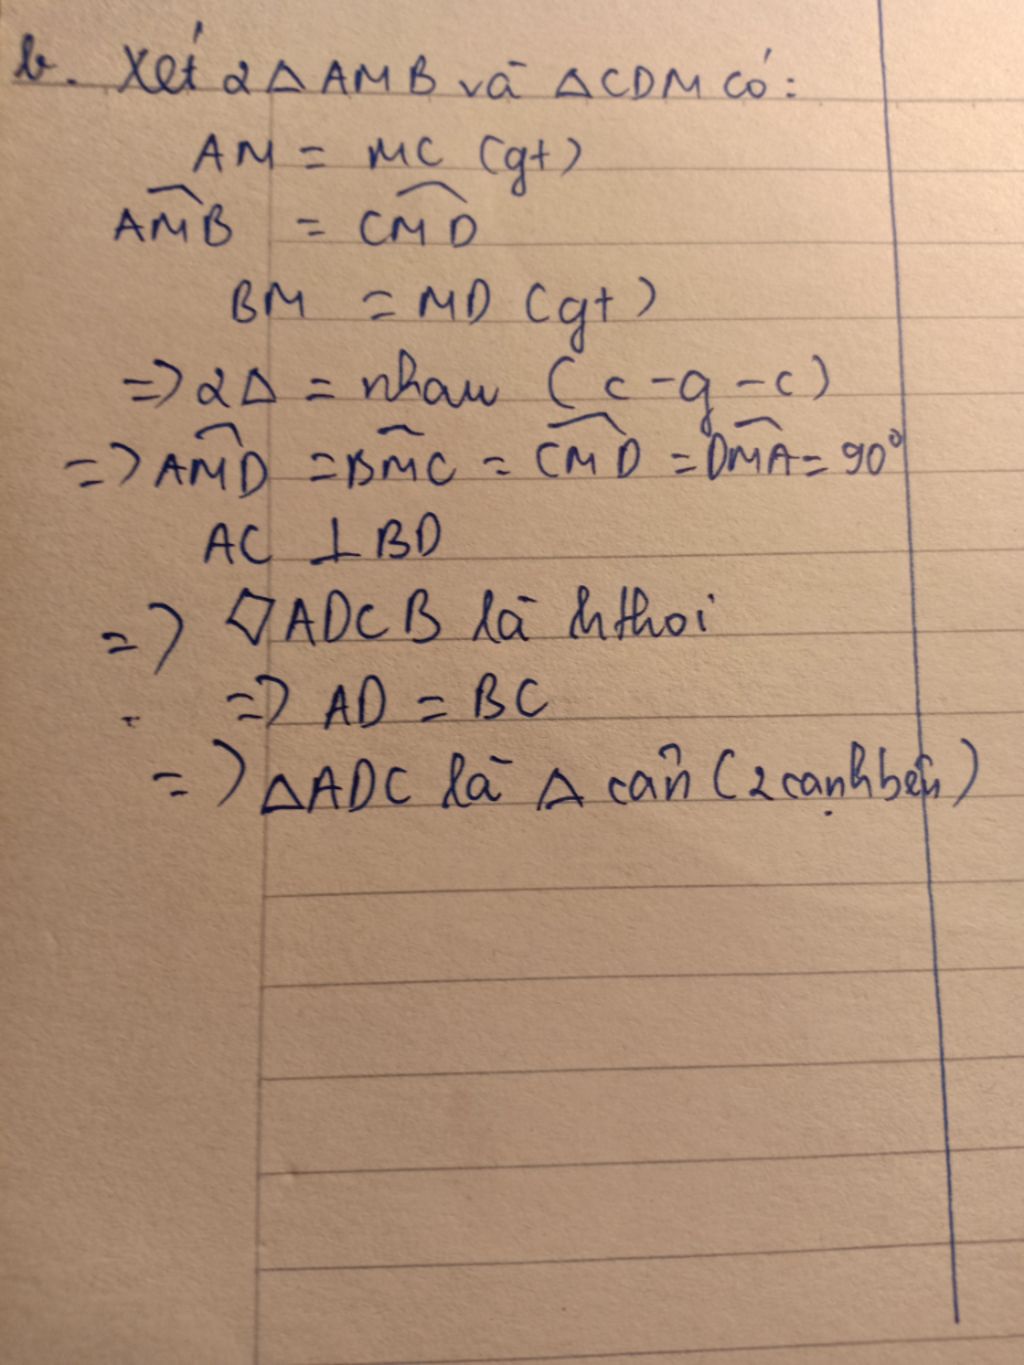 b. Xét 2 Δ AMB và ΔCDM có:
AM = MC (gt)
AMB = CMD
BM = MD (gt)
=> 2Δ = nhau (c-g-c)
=> AMD = BMC = CMD = DMA = 90°
AC ⊥ BD
=> ◇ADCB là hthoi
=> AD = BC
=> ΔADC là Δ cân (2 cạnh bên)